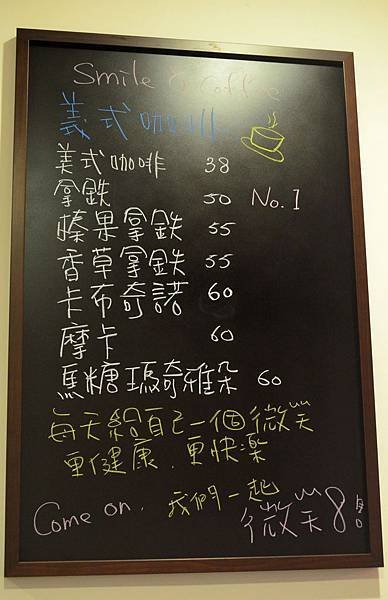 Smile & Coffee
義式咖啡
美式咖啡 38
拿鉄 50 No.1
榛果拿鉄 55
香草拿鉄 55
卡布奇諾 60
摩卡 60
馬糖瑪奇雅朵 60
每天給自己一個微笑
更健康.更快樂
Come on, 我們一起
微笑8!